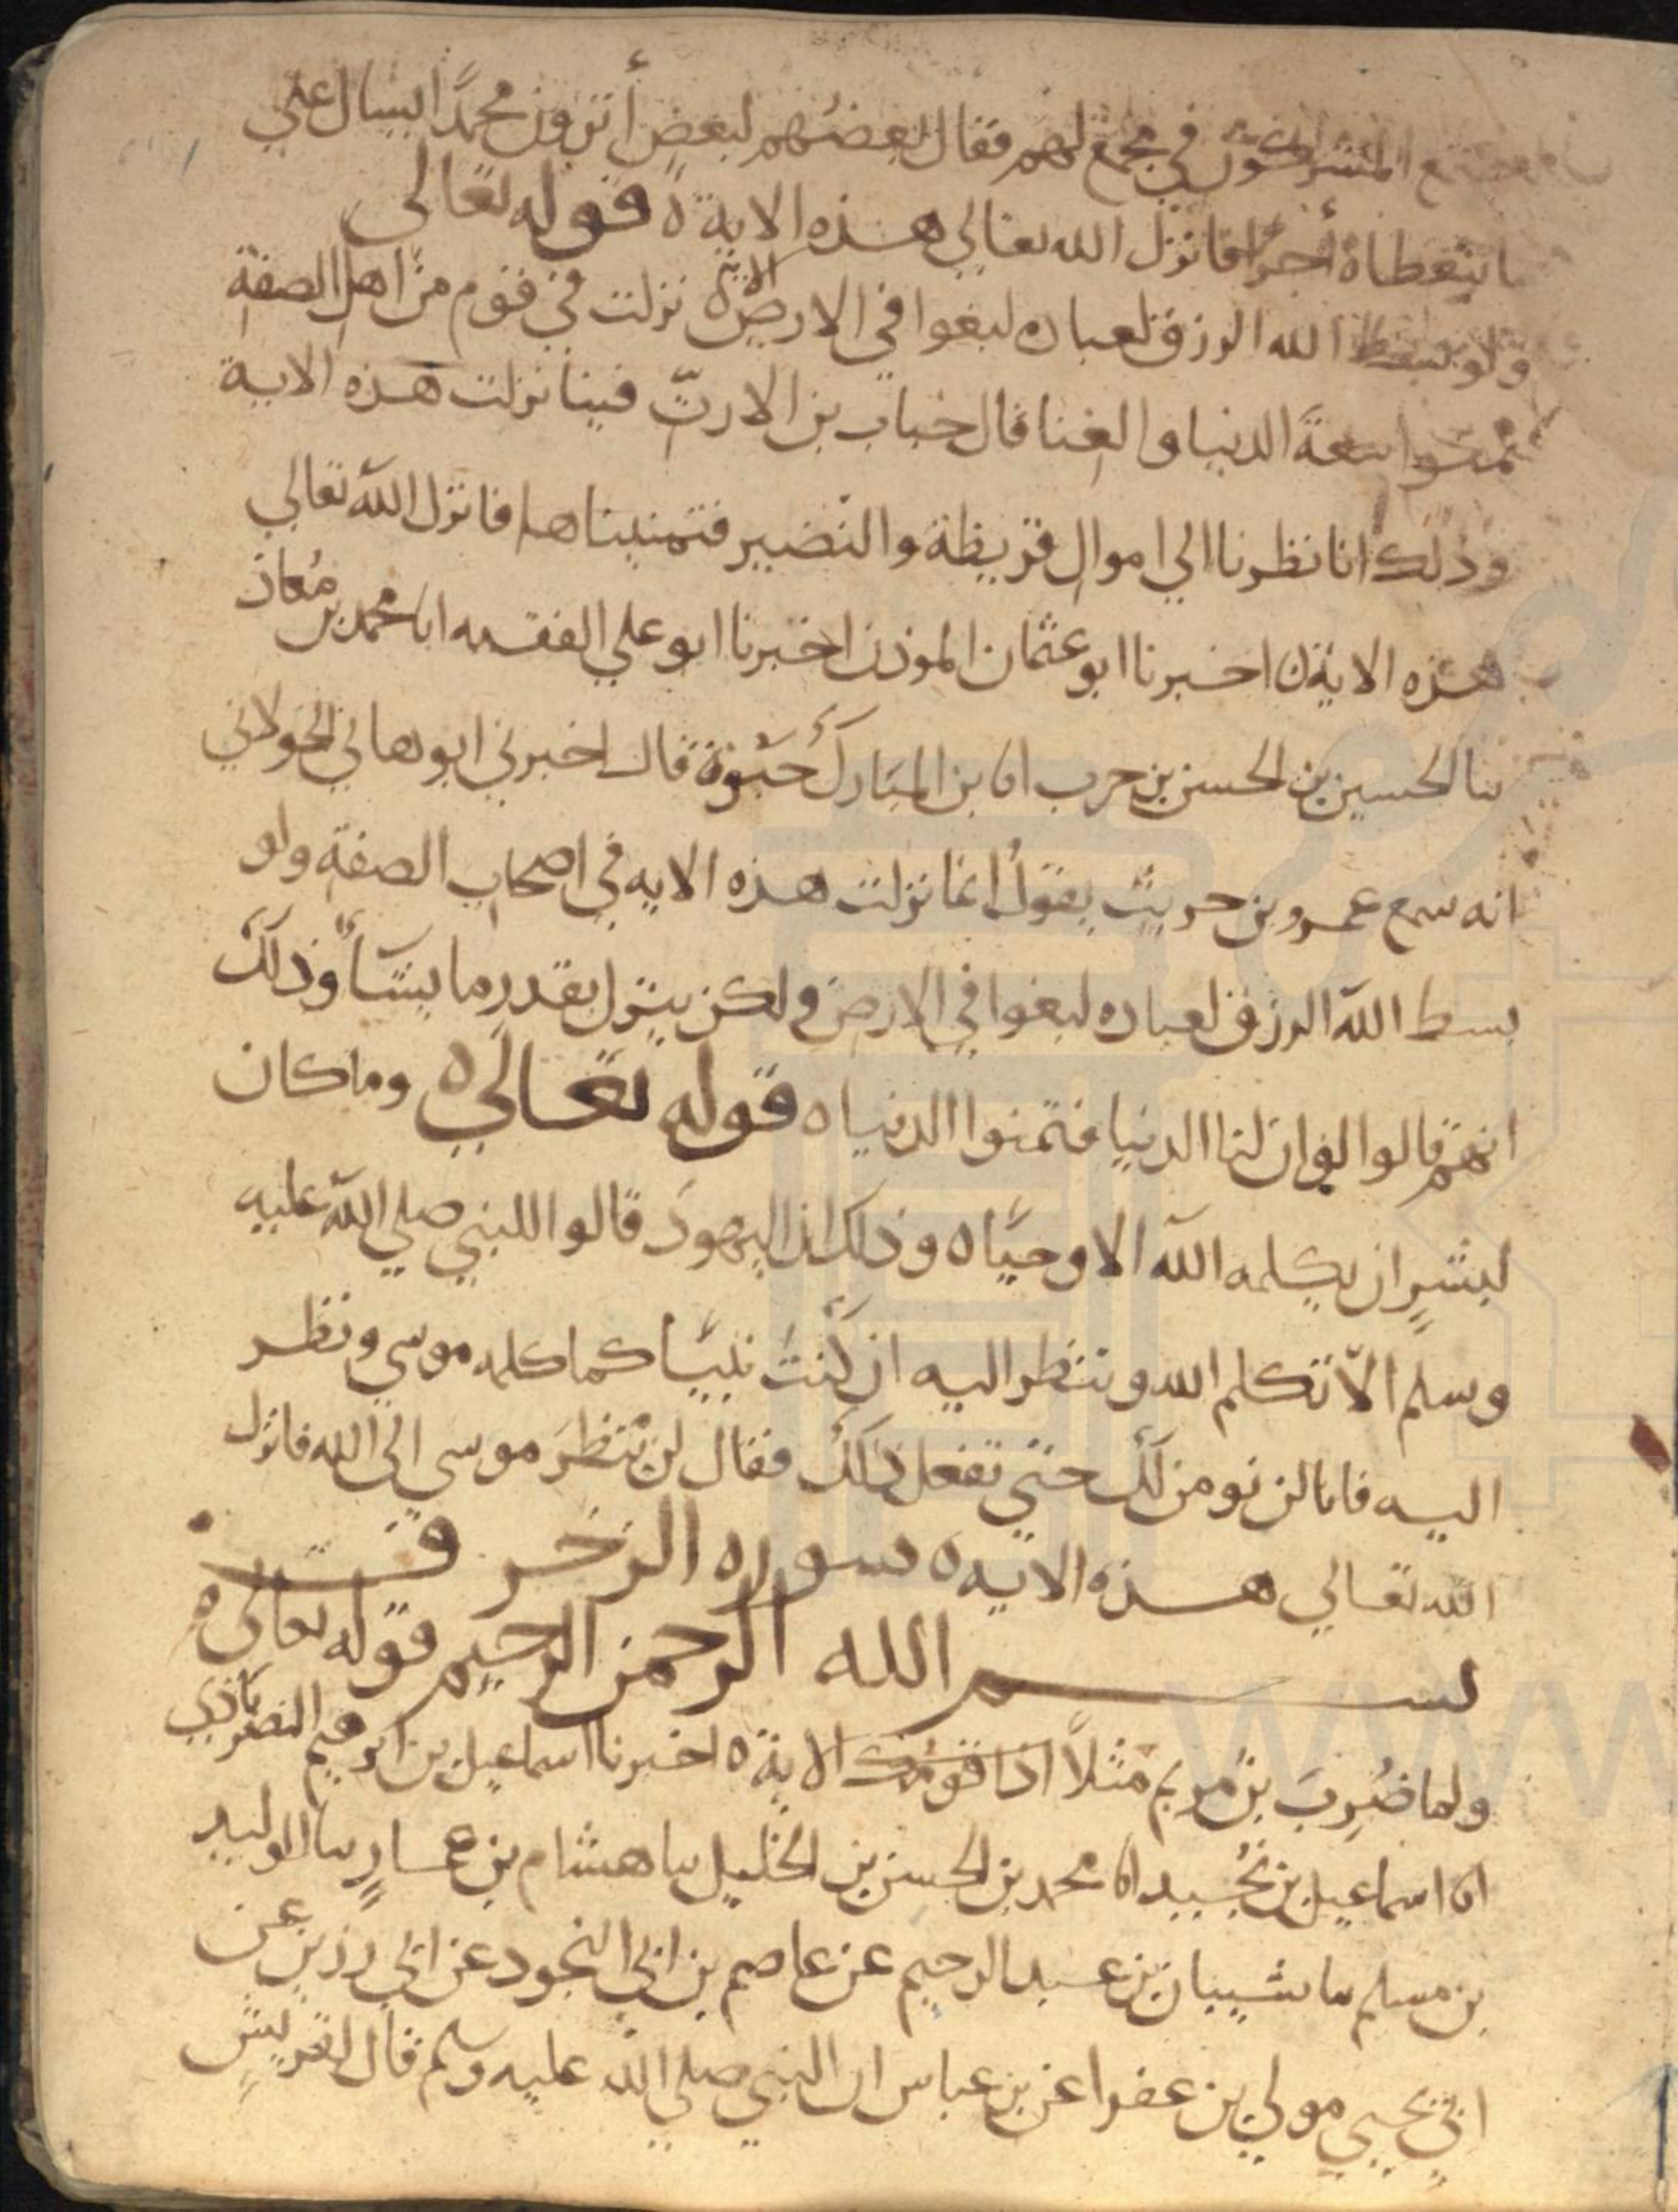 المشركون في مجمع لهم فقال بعضهم لبعض أترون محمدًا يسال علي
ما يتعطاه أجرًا فانزل الله تعالى هذه الاية ه قوله تعالى
ولو بسط الله الرزق لعباده لبغوا في الارض الاية ه نزلت في قوم من اهل الصفة
تمنوا سعة الدنيا والغنا قال خباب بن الارتّ فينا نزلت هذه الاية
وذلك انا نظرنا الي اموال قريظة والنضير فتمنيناها فانزل الله تعالي
هذه الاية ه اخبرنا ابو عثمان الموذن اخبرنا ابو علي الفقيه انا محمد بن مُعاذ
نا الحسين بن الحسن بن حرب انا بن المبارك حَيْوة قال اخبرني ابو هاني الخولاني
انه سمع عمرو بن حريث يقول انما نزلت هذه الايه في اصحاب الصفة ولو
بسط الله الرزق لعباده لبغوا في الارض ولكن ينزل بقدر ما يشآء وذلك
انهم قالوا لو ان لنا الدنيا فتمنوا الدنيا ه قوله تعالي ه وما كان
لبشرٍ ان يكلمه الله الا وحيًا ه وذلك ان اليهودَ قالوا للنبي صلى الله عليه
وسلم الاّ تكلم الله وتنظر اليه ان كنتَ نبيًا كما كلمه موسي ونظر
اليه فانا لن نومن لك حتي تفعل ذلك فقال لن ينظرَ موسى الى الله فانزل
الله تعالي هذه الايه ه سوره الزخرف
بسم الله الرحمن الرحيم قوله تعالى ه
ولما ضُرِبَ بنُ مريم مثلاً اذا قومك الاية ه اخبرنا اسماعيل بن ابرهيم النصراباذي
انا اسماعيل بن نُجَيد انا محمد بن الحسن بن الخليل نا هشام بن عمارٍ نا الوليد
بن مسلم نا شيبان بن عبد الرحيم عن عاصم بن ابي النجود عن ابي رزين عن
ابي يحيي مولي بن عفرا عن بن عباس ان النبي صلى الله عليه وسلم قال لقريشٍ